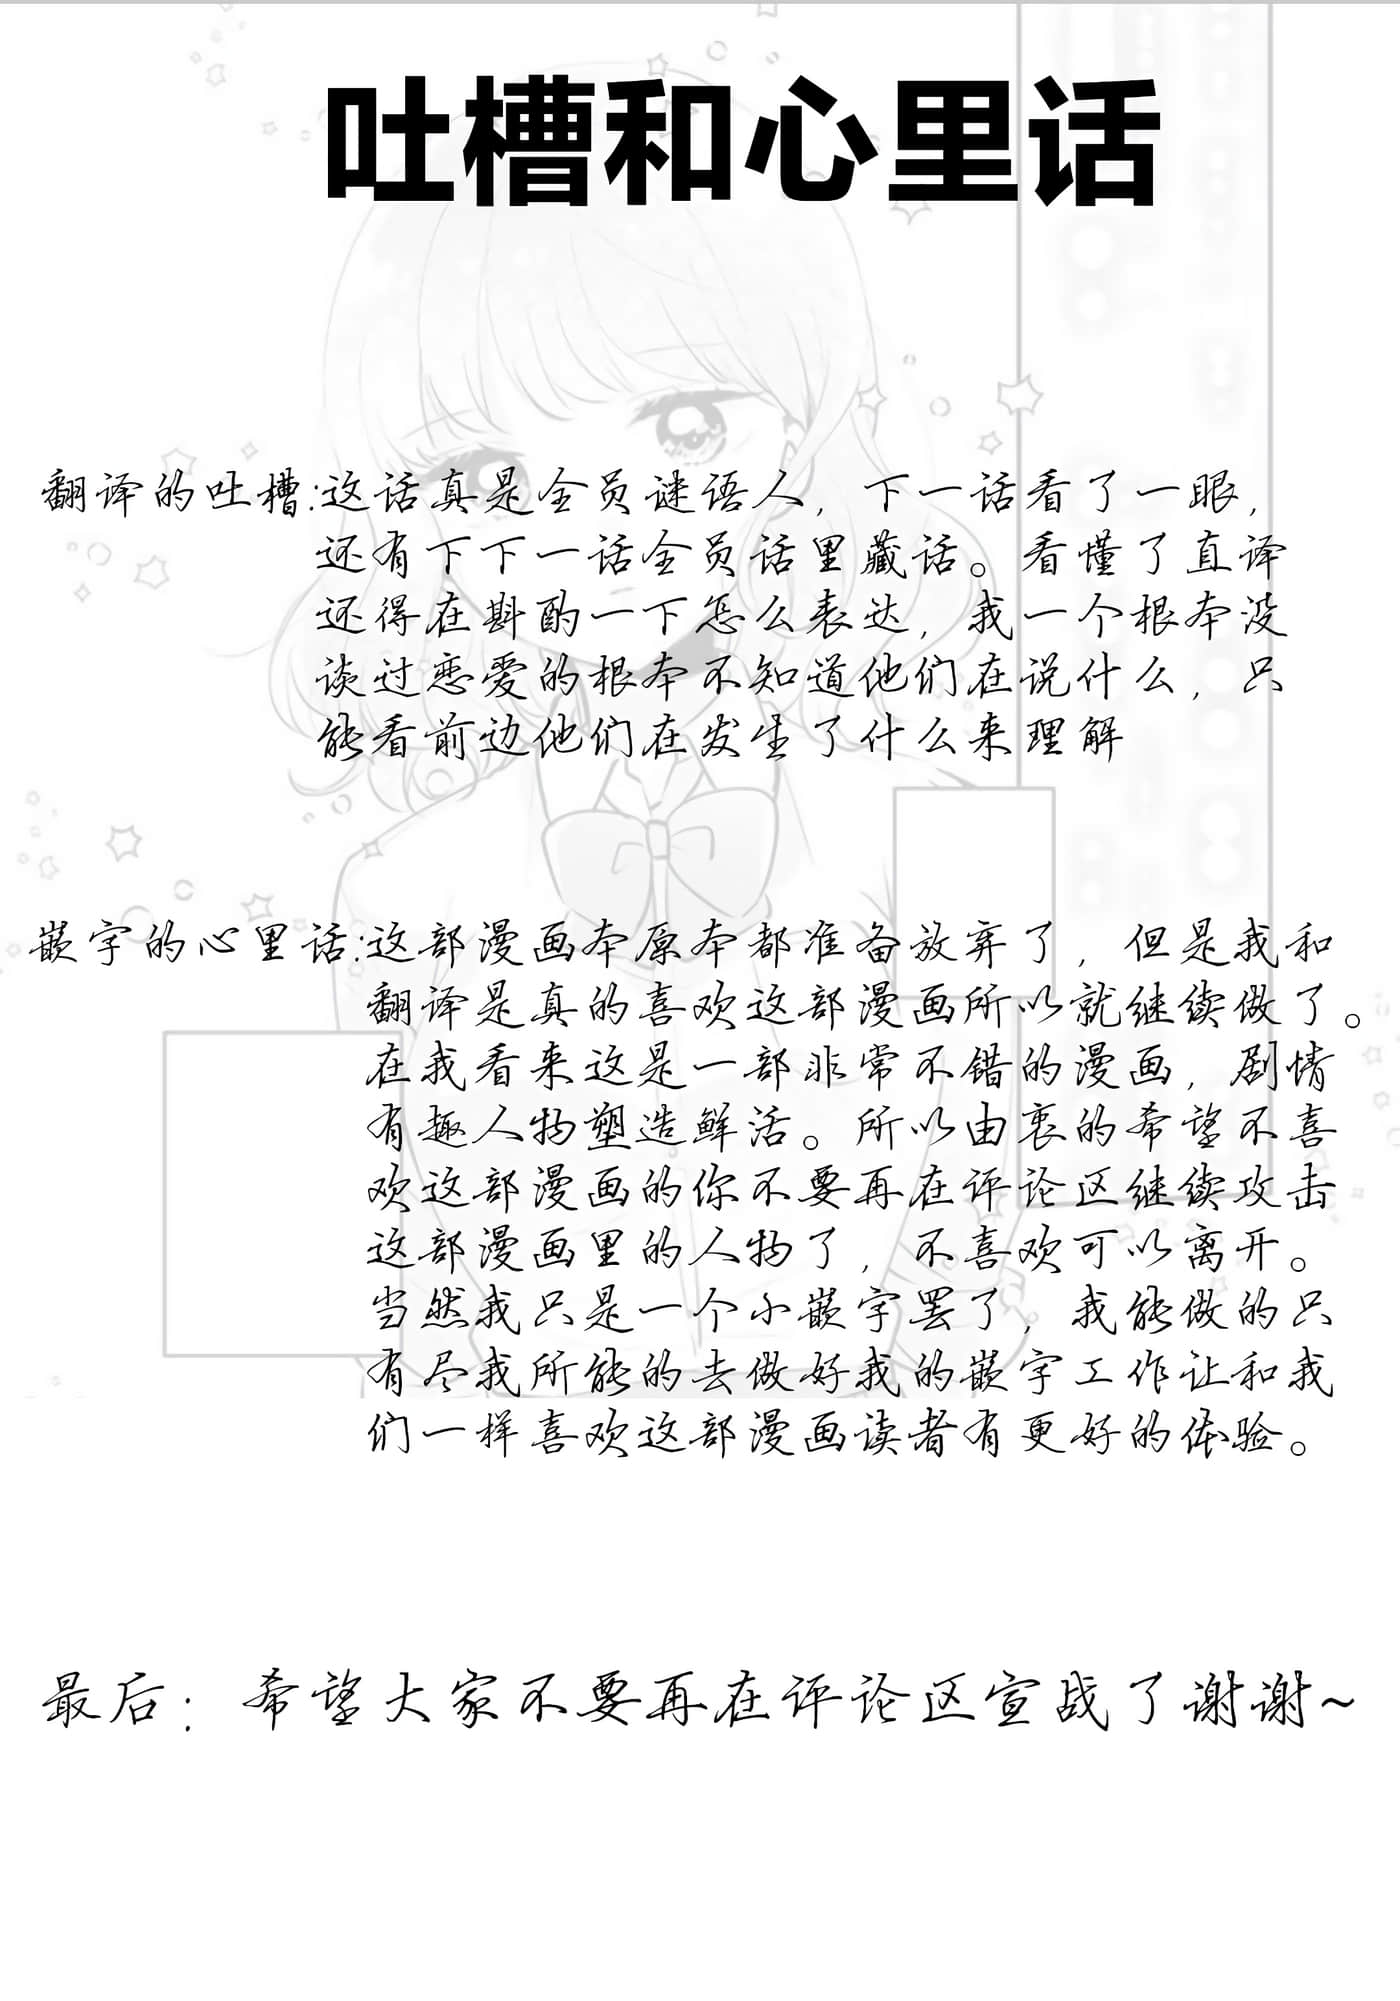 吐槽和心里话
翻译的吐槽:这话真是全员谜语人，下一话看了一眼，
还有下下一话全员话里藏话。看懂了直译
还得在斟酌一下怎么表达，我一个根本没
谈过恋爱的根本不知道他们在说什么，只
能看前边他们在发生了什么来理解
嵌字的心里话:这部漫画本原本都准备放弃了，但是我和
翻译是真的喜欢这部漫画所以就继续做了。
在我看来这是一部非常不错的漫画，剧情
有趣人物塑造鲜活。所以由衷的希望不喜
欢这部漫画的你不要再在评论区继续攻击
这部漫画里的人物了，不喜欢可以离开。
当然我只是一个小嵌字罢了，我能做的只
有尽我所能的去做好我的嵌字工作让和我
们一样喜欢这部漫画读者有更好的体验。
最后：希望大家不要再在评论区宣战了谢谢~